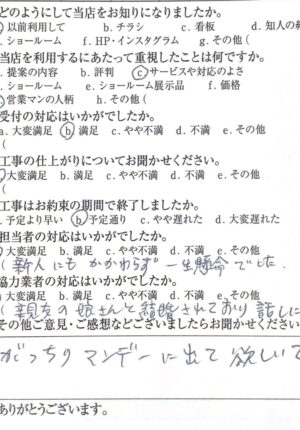 どのようにして当店をお知りになりましたか。
以前利用して　b. チラシ　c. 看板　d. 知人の紹
. ショールーム　f. HP・インスタグラム　g. その他 (
当店を利用するにあたって重視したことは何ですか。
. 提案の内容　b. 評判　c サービスや対応のよさ
. ショールーム　e. ショールーム展示品　f. 価格
営業マンの人柄　h. その他 (
受付の対応はいかがでしたか。
a. 大変満足　b 満足　c. やや不満　d. 不満　e. その他
(
工事の仕上がりについてお聞かせください。
大変満足　b. 満足　c. やや不満　d. 不満　e. その他
(
工事はお約束の期間で終了しましたか。
. 予定より早い　b 予定通り　c. やや遅れた　d. 大変遅れた
担当者の対応はいかがでしたか。
大変満足　b. 満足　c. やや不満　d. 不満　e. その他
( 新人にもかかわらず一生懸命でした.
協力業者の対応はいかがでしたか。
a. 大変満足　b. 満足　c. やや不満　d. 不満　e. その他
( 親友の娘さんと結婚されており 話しに
その他ご意見・ご感想などございましたらお聞かせください
がっちりマンデーに出て欲しいで
ありがとうございます。